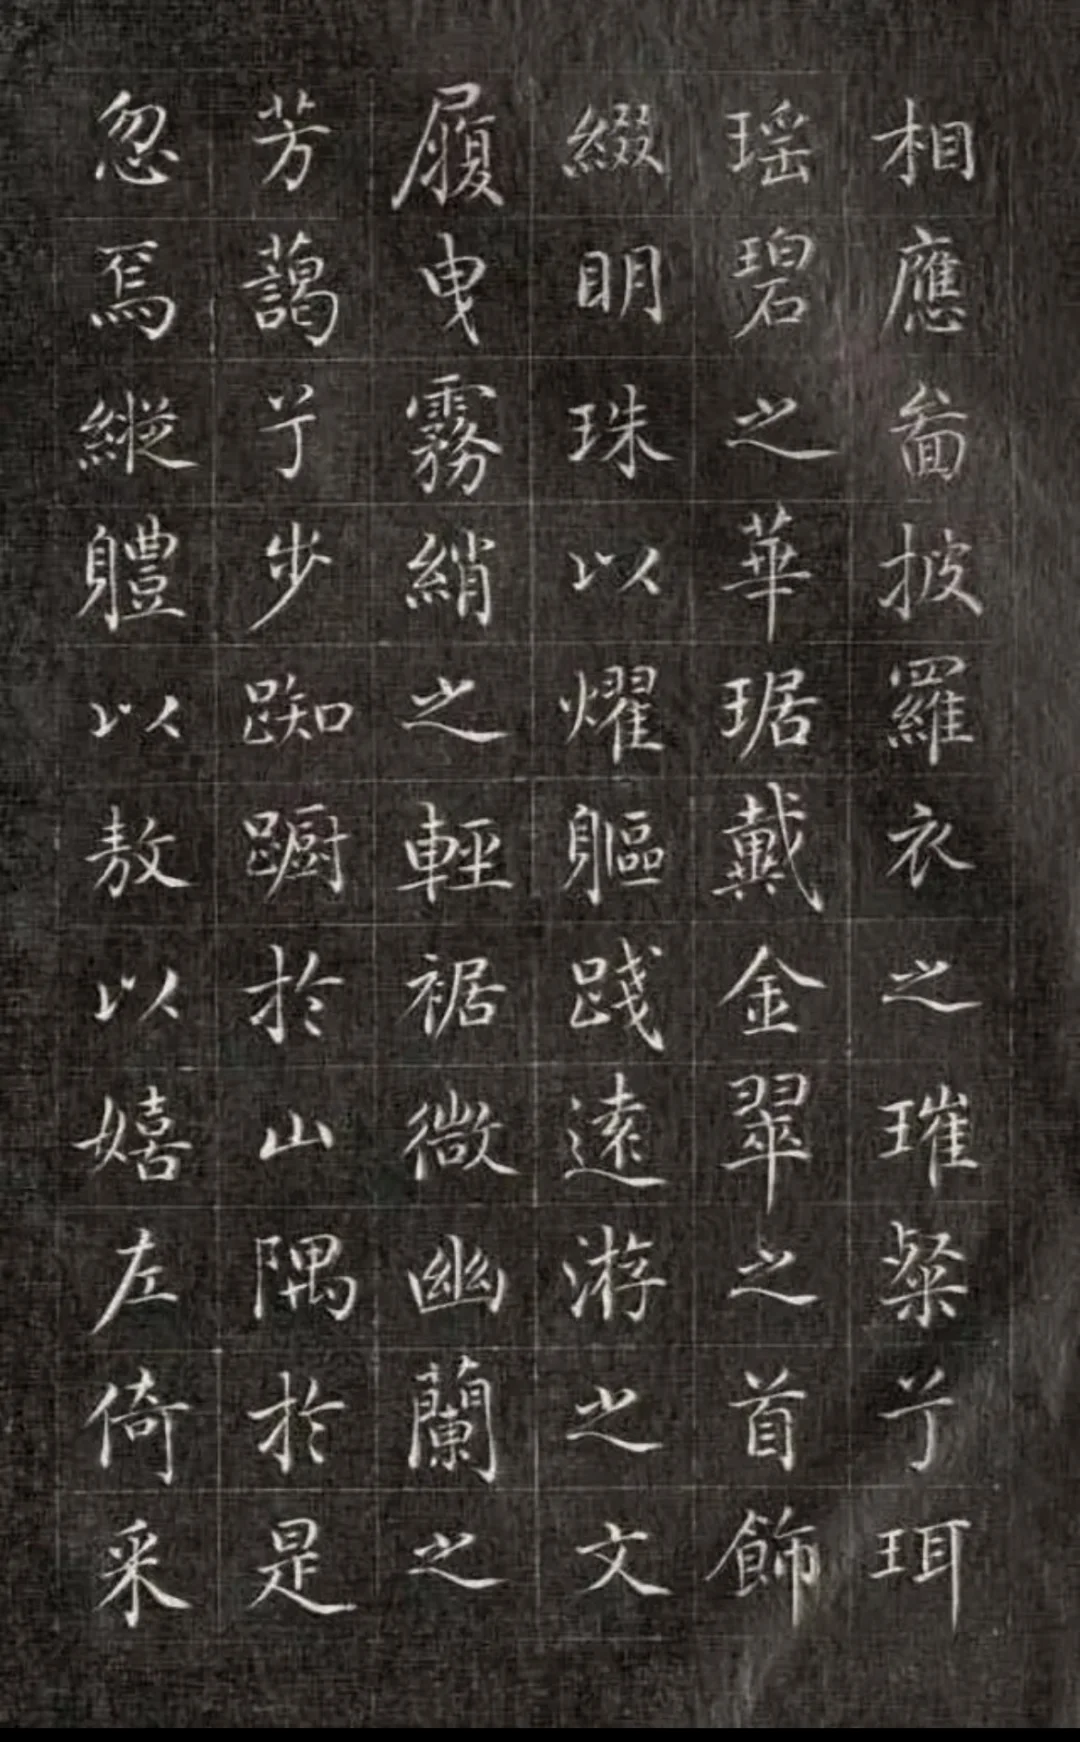 相應啚披羅衣之璀粲兮珥
瑶碧之華琚戴金翠之首飾
綴明珠以燿軀踐遠游之文
履曳霧綃之輕裾微幽蘭之
芳藹兮步踟蹰於山隅於是
忽焉縱體以敖以嬉左倚采